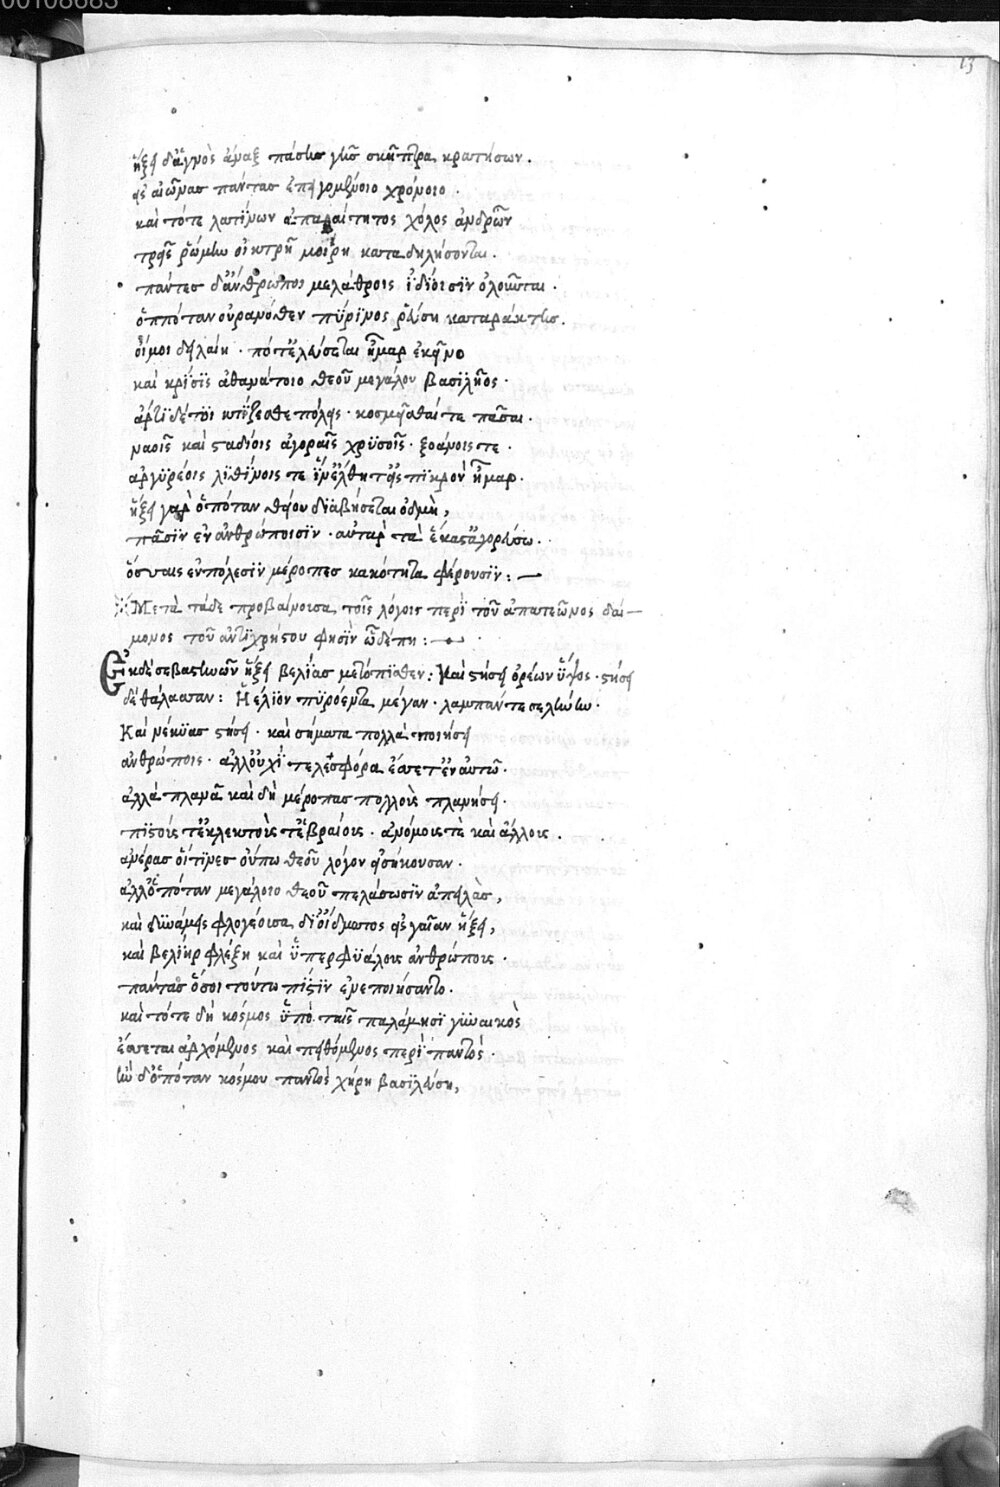 00108683
13
ἥξει δ' ἁγνὸς ἄναξ πάσης γῆς σκῆπτρα κρατήσων.
εἰς αἰῶνας πάντας ἐπειγομένοιο χρόνοιο.
καὶ τότε λατίνων ἀπαραίτητος χόλος ἀνδρῶν
τρεῖς ῥώμην οἰκτρῆ μοίρη καταδηλήσονται.
πάντες δ' ἄνθρωποι μελάθροις ἰδίοισιν ὀλοῦνται.
ὁππόταν οὐρανόθεν πύρινος ῥεύση καταράκτης.
οἴμοι δηλαίη. πότ' ἐλεύσεται ἦμαρ ἐκεῖνο
καὶ κρίσις ἀθανάτοιο θεοῦ μεγάλου βασιλῆος.
ἄρτι δέ τοι κτίζεσθε πόλεις. κοσμεῖσθαί τε πᾶσαι.
ναοῖς καὶ σταδίοις ἀγοραῖς χρυσοῖς. ξοάνοις τε.
ἀργυρέοις λιθίνοις τε ἵν' ἔλθητ' εἰς πικρὸν ἦμαρ.
ἥξει γὰρ ὁπόταν θείου διαβήσεται ὀδμὴ,
πᾶσιν ἐν ἀνθρώποισιν. αὐτὰρ τὰ ἕκαστ' ἀγορεύσω.
ὅσσαις ἐν πόλεσιν μέροπες κακότητα φέρουσιν:—
Μετὰ τάδε προβαίνουσα τοῖς λόγοις περὶ τοῦ ἀπατεῶνος δαί—
μονος τοῦ ἀντιχρήστου φησὶν ὧδέ πη:—
Ἐκ δὲ σεβαστηνῶν ἥξει βελίας μετόπισθεν: Καὶ στήσει ὀρέων ὕψος. στήσει
δὲ θάλασσαν: Ἠέλιον πυρόεντα μέγαν. λαμπάν τε σελήνην.
Καὶ νέκυας στήσει. καὶ σήματα πολλὰ ποιήσει
ἀνθρώποις. ἀλλ' οὐχὶ τελεσφόρα ἔσσετ' ἐν αὐτῶ.
ἀλλὰ πλανᾶ καὶ δὴ μέροπας πολλοὺς πλανήσει.
πιστούς τ' ἐκλεκτοὺς τ' ἑβραίους. ἀνόμους τὲ καὶ ἄλλους.
ἀνέρας οἵτινες οὔπω θεοῦ λόγον εἰσήκουσαν.
ἀλλ' ὁπόταν μεγάλοιο θεοῦ πελάσωσιν ἀπειλὰς,
καὶ δύναμις φλογέουσα δι' οἴδματος εἰς γαῖαν ἥξει,
καὶ βελίηρ φλέξη καὶ ὑπερφυάλους ἀνθρώπους.
πάντας ὅσοι τούτω πίστιν ἐνεποιήσαντο.
καὶ τότε δὴ κόσμος ὑπὸ ταῖς παλάμησι γυναικὸς
ἔσσεται ἀρχόμενος καὶ πειθόμενος περὶ παντὸς.
ἣν δ' ὁπόταν κόσμου παντὸς χήρη βασιλεύση,